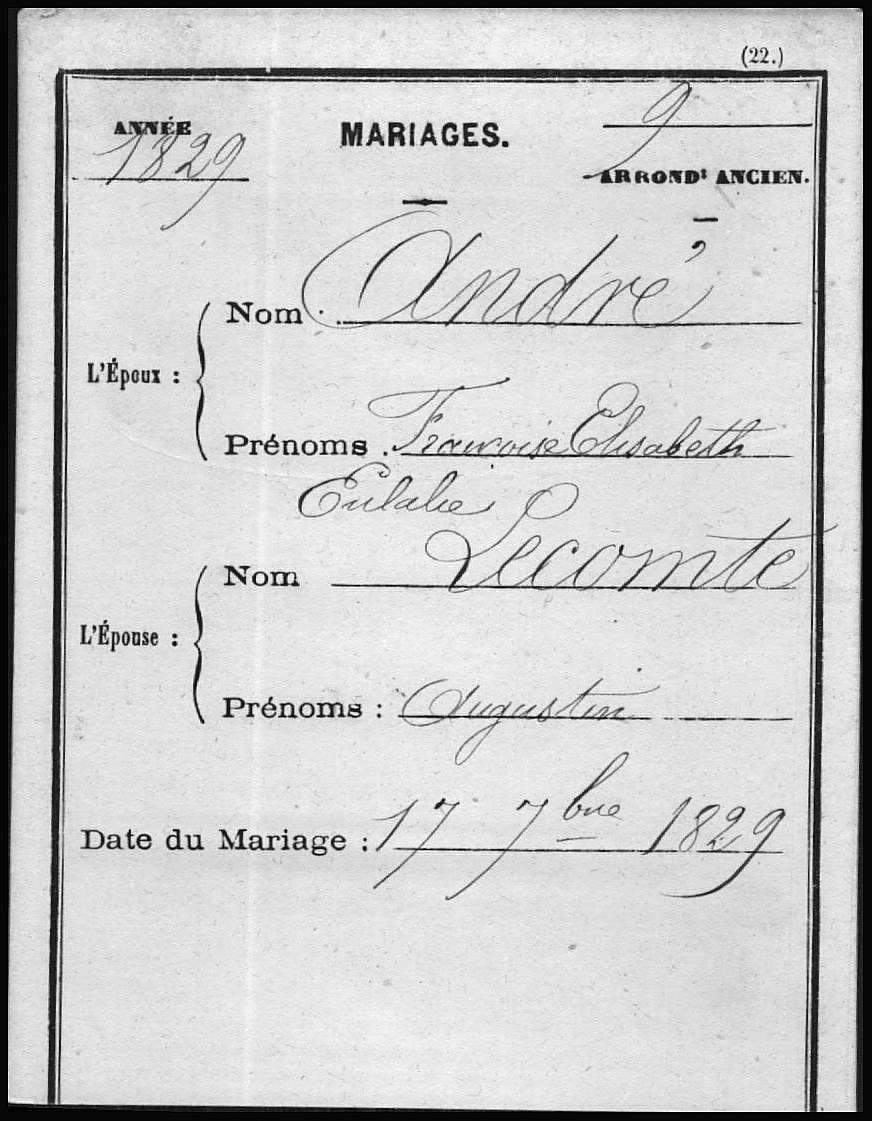 (22.)
ANNÉE
1829
MARIAGES.
9
ARRONDt ANCIEN.
Nom André
L'Époux :
Prénoms . Francoise Elisabeth
Eulalie
Nom Lecomte
L'Épouse :
Prénoms : Augustin
Date du Mariage : 17 7bre 1829